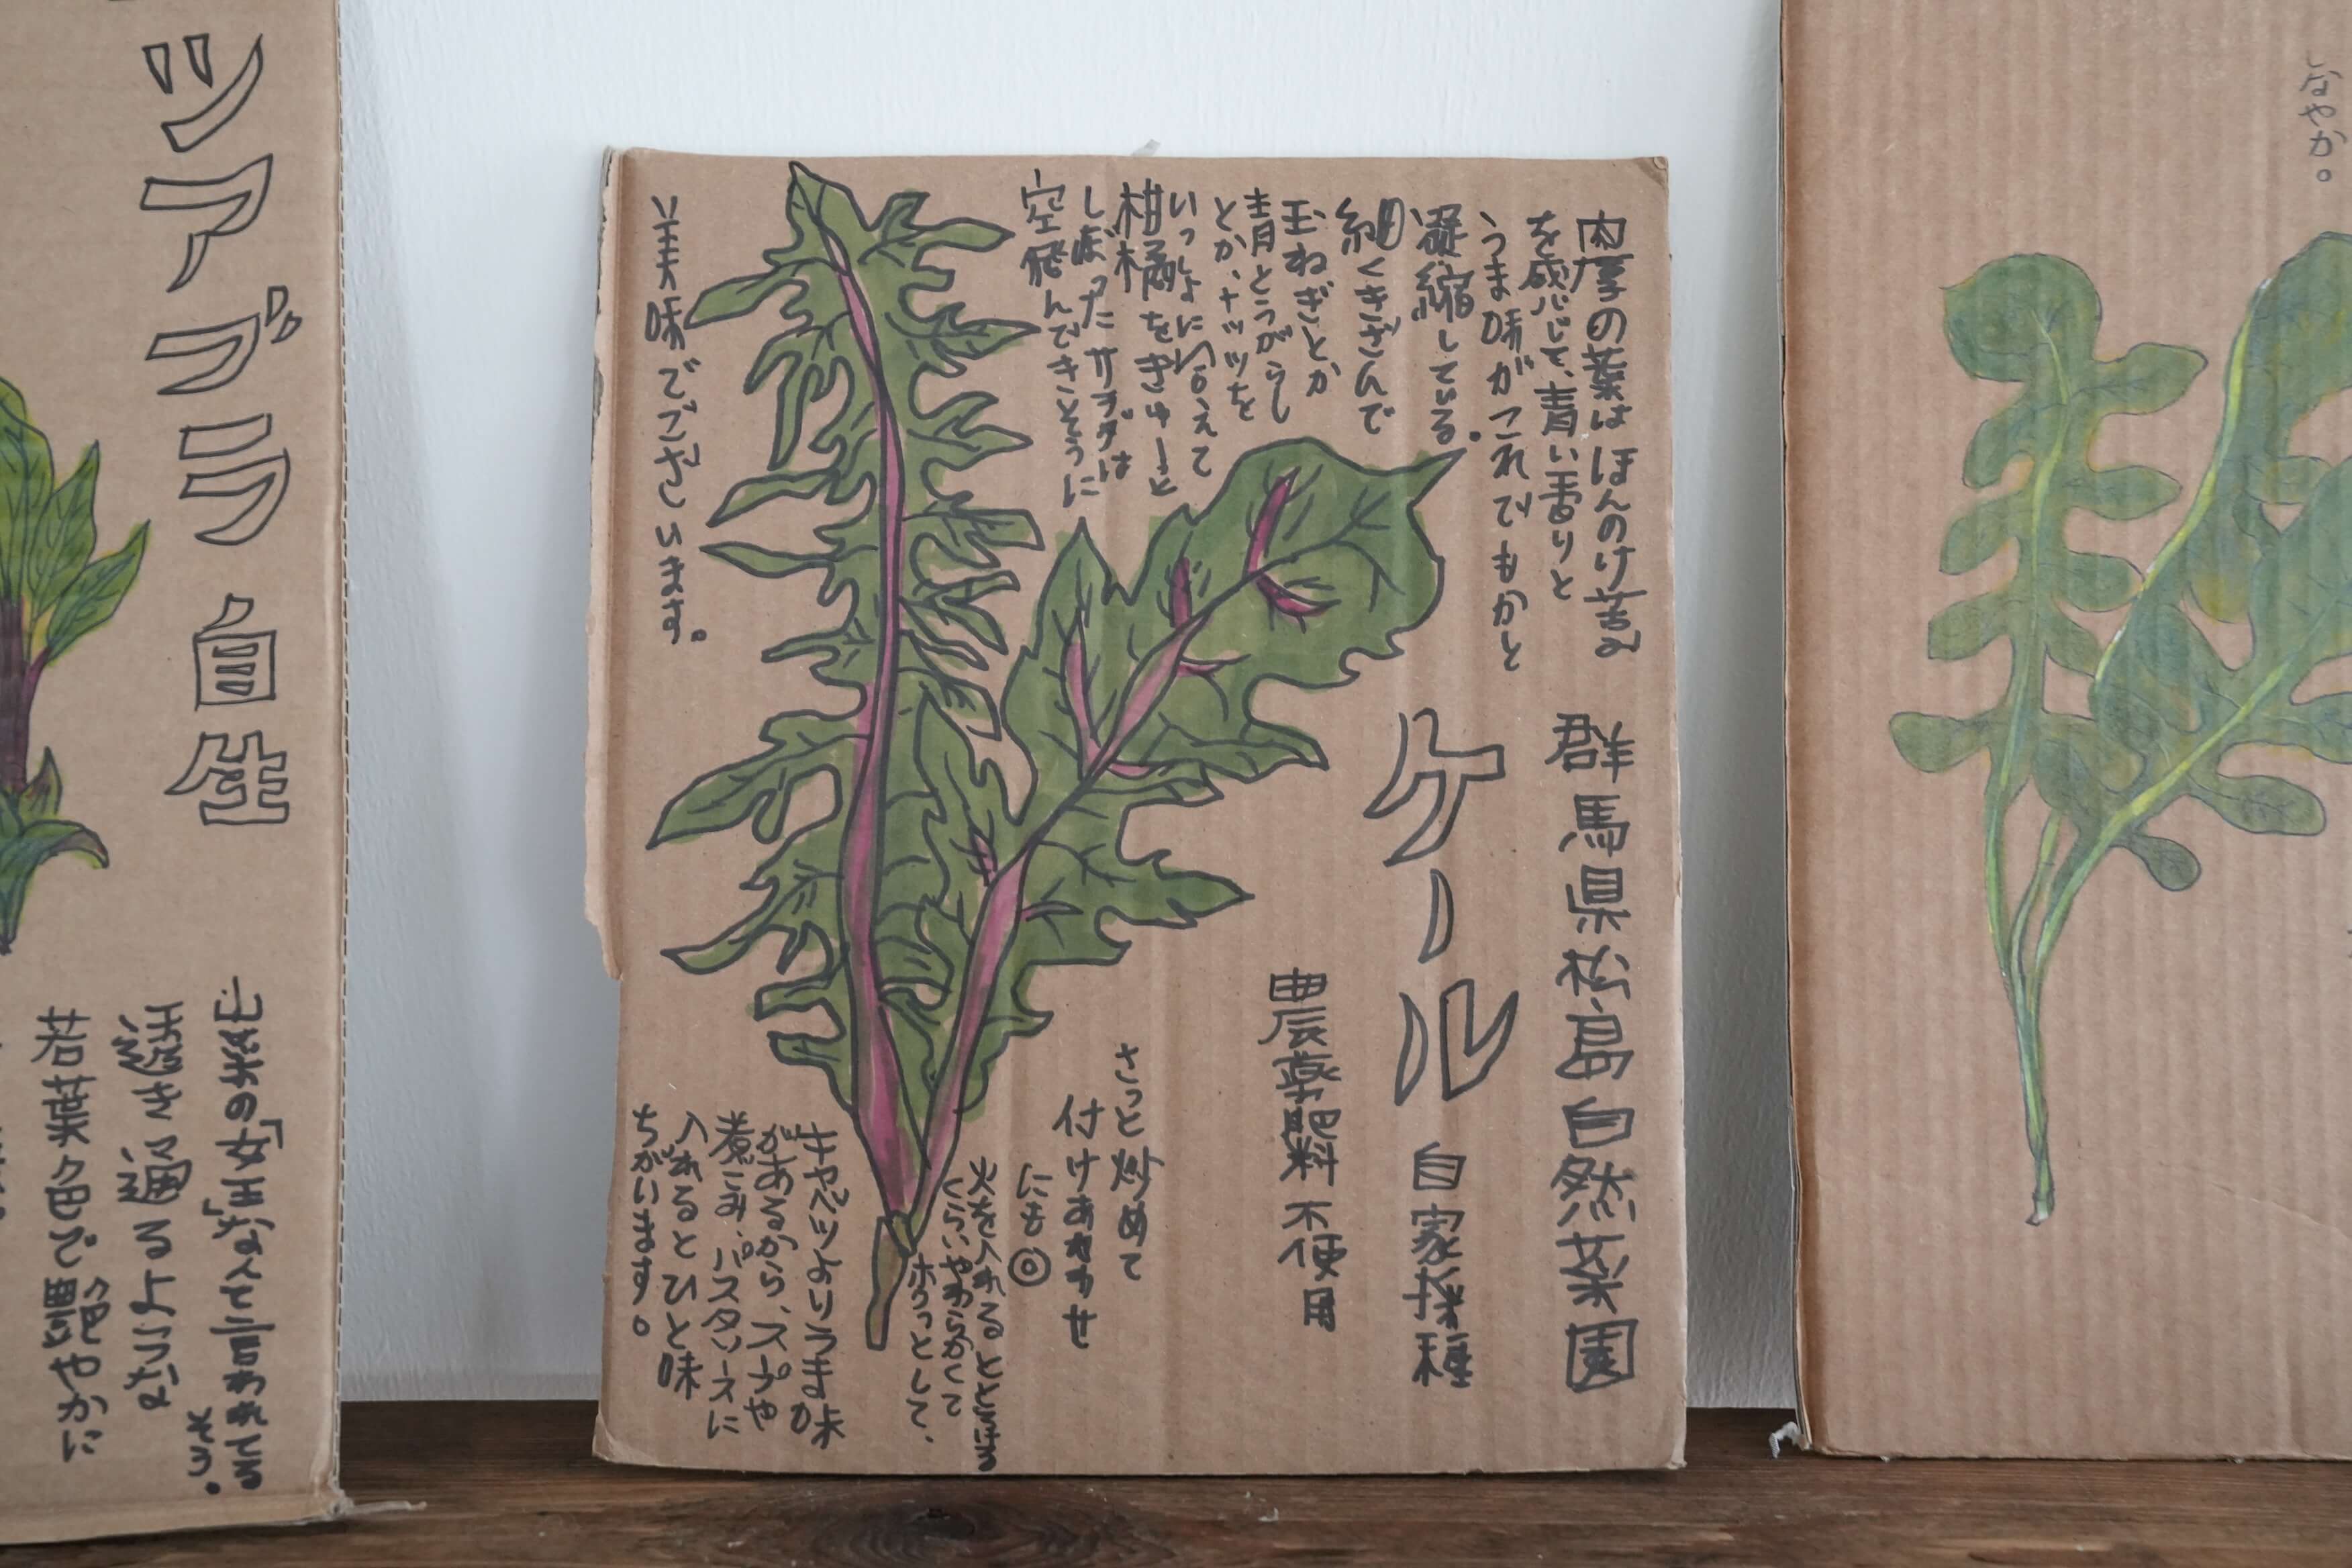 しなやか。
肉厚の葉はほんのり苦み
を感じて、青い香りと
うま味がこれでもかと
凝縮している。
細くきざんで
玉ねぎとか
青とうがらし
とか、ナッツを
いっしょに合えて
柑橘をきゅーっと
しぼったサラダは
空飛んできそうに
美味でございます。
群馬県松島自然菜園
ケール 自家採種
農薬肥料不使用
さっと炒めて
付けあわせ
にも◎
火を入れるととろける
くらいやわらかくて
ホクっとして、
キャベツよりうま味
があるから、スープや
煮こみ、パスタソースに
入れるとひと味
ちがいます。
ツアブラ 自生
の女王」なんて言われてる
そう。
透き通るような
若葉色で艶やかに